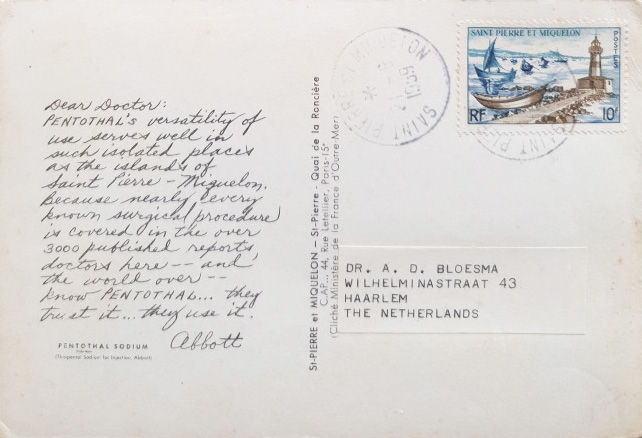 Dear Doctor:
PENTOTHAL'S versatility of
use serves well in
such isolated places
as the islands of
Saint Pierre - Miquelon.
Because nearly every
known surgical procedure
is covered in the over
3000 published reports,
doctors here -- and
the world over --
know PENTOTHAL... they
trust it... they use it.
Abbott
PENTOTHAL SODIUM
(Thiopental Sodium for Injection, Abbott)
St-PIERRE et MIQUELON — St-Pierre - Quai de la Roncière
C.A.P. . 44, Rue Letellier, Paris-15e
(Cliché Ministère de la France d'Outre-Mer)
SAINT PIERRE ET MIQUELON
POSTES
RF
10F
MIQUELON
SAINT PIERRE
SAINT PI
DR. A. D. BLOESMA
WILHELMINASTRAAT 43
HAARLEM
THE NETHERLANDS